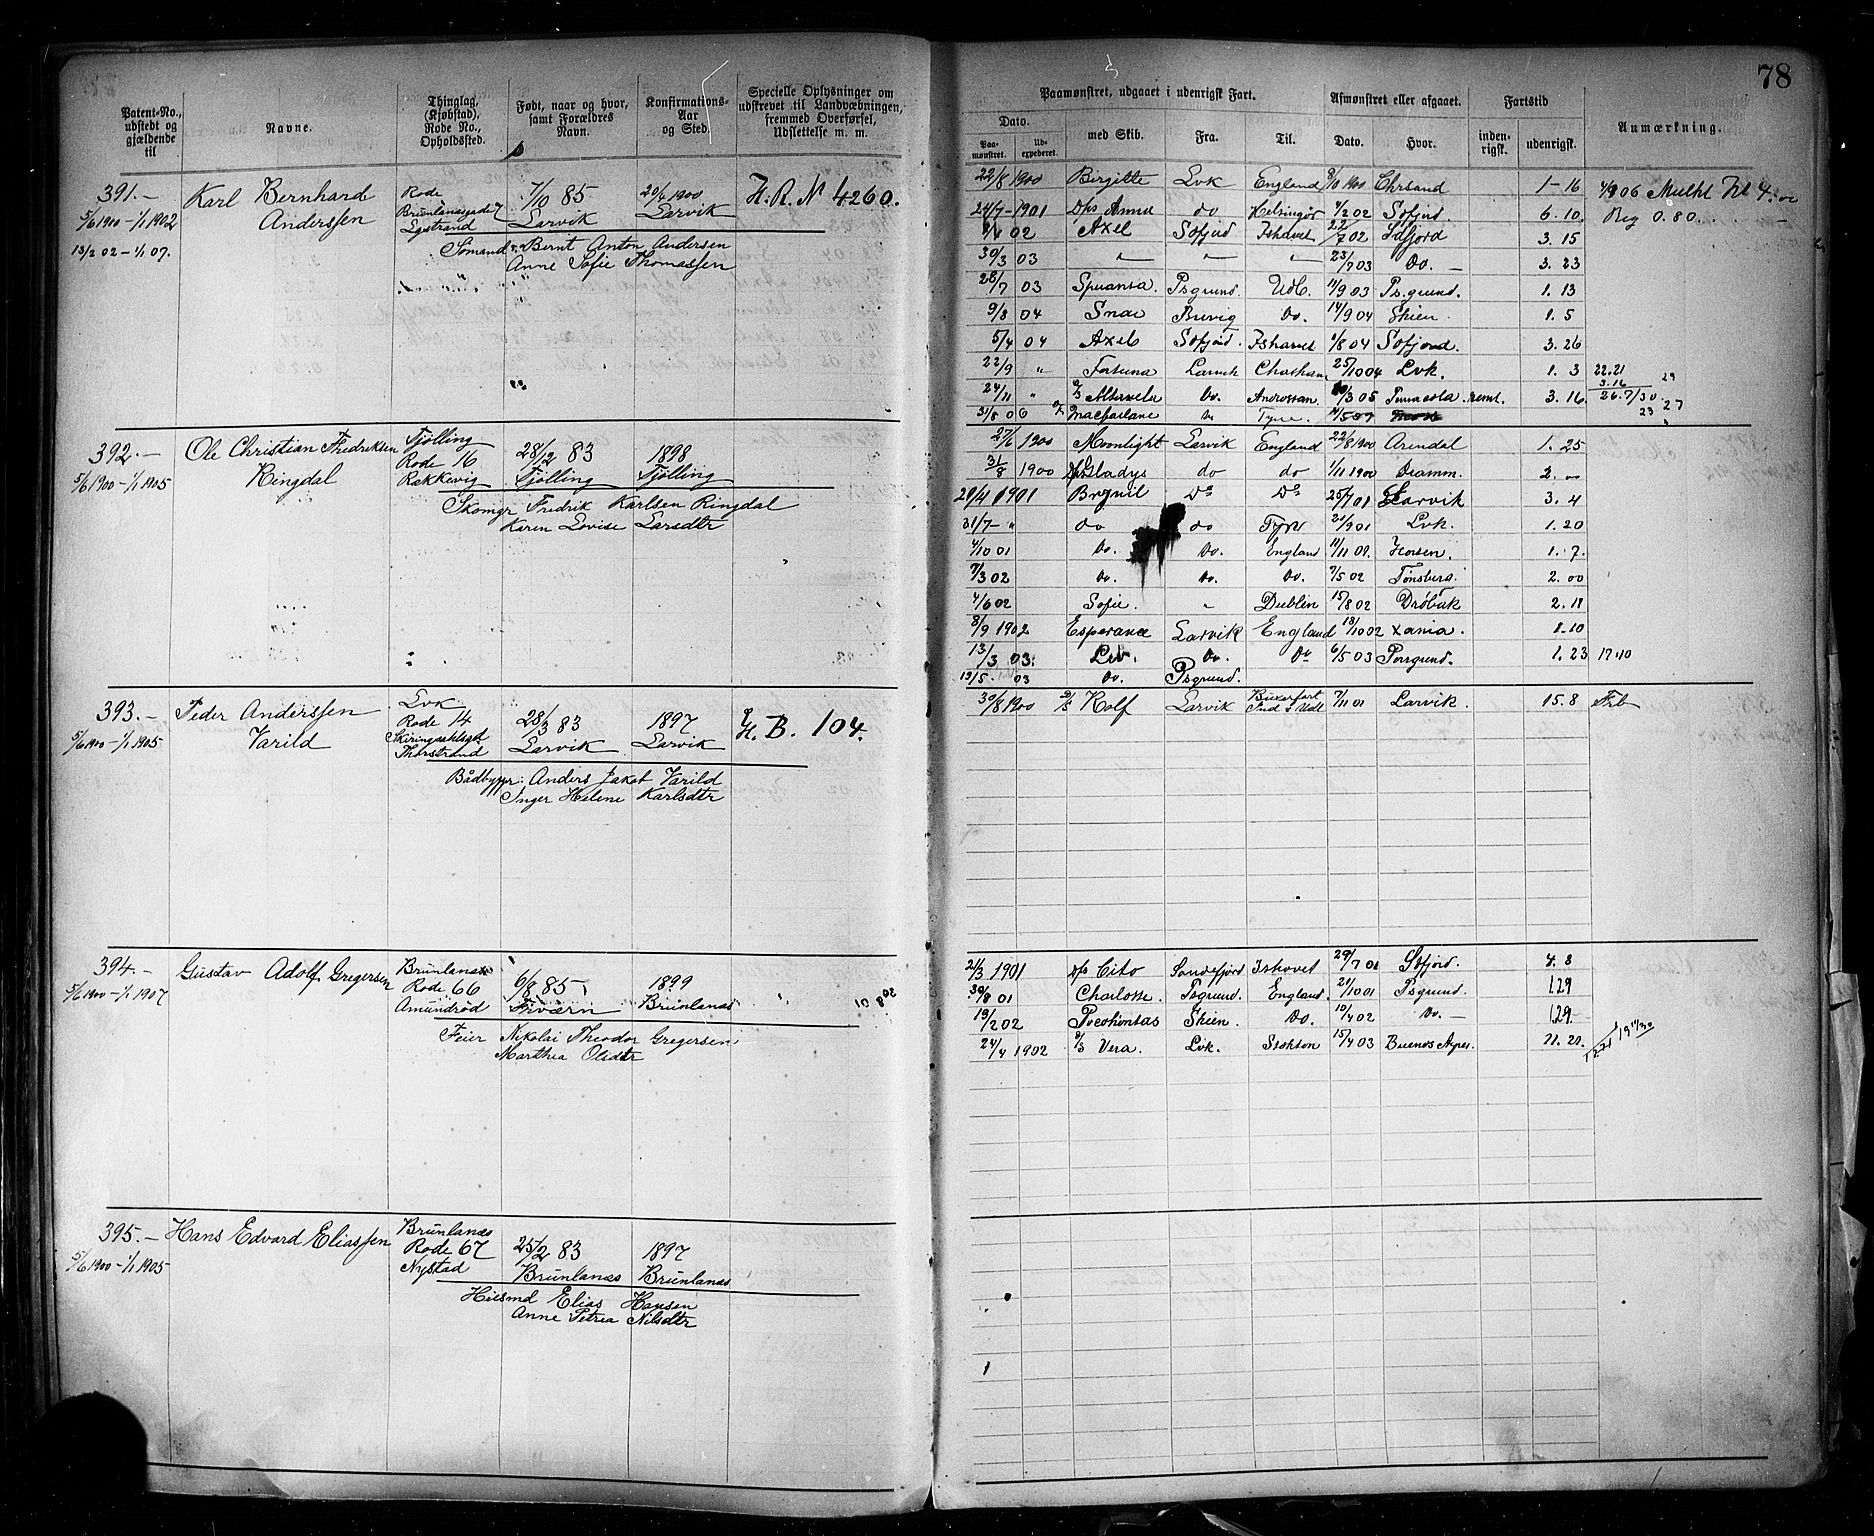 78
Patent-No., udstedt og gjældende til
Navne.
Thinglag, (Kjøbstad), Rode No., Opholdssted.
Født, naar og hvor, samt Forældres Navn.
Konfirmations-Aar og Sted.
Specielle Oplysninger om udskrevet til Landværbningen, fremmed Overførsel, Udslettelse m. m.
Paamønstret, udgaaet i udenrigsk Fart.
Afmønstret eller afgaaet.
Fartstid
Anmærkning.
Dato.
Paa-mønstret.
Ud-expederet.
med Skib.
Fra.
Til.
Dato.
Hvor.
inden-rigsk.
udenrigsk.
391.-
5/6 1900 - 1/1 1902
13/2 02 - 1/1 07.
Karl Bernhard
Anderssen
Rode
Brunlanesgade 7
7/10 85
Larvik
20/4 1900
Larvik
H. R. N 4260.
Sømand Bernt Anton Andersen
Anne Sofie Thomassen
22/8 1900 Birgitte Lvk England 8/10 1900 Chrsand 1-16
24/7 - 1901 D/s Anna do Helsingør 4/2 02 Sofjord 6. 10.
02 Axel Sofjord Ishavet 22/7 02 3. 15
30/3 03 〃 〃 〃 23/7 03 Do. 3. 23
28/7 03 Psgrund. Udl. 11/9 03 Psgrund. 1. 13
9/8 04 Brevig Do. 14/9 04 Skien. 1. 5
5/4 04 Axel Sofjord. Ishavet 1/8 04 Sofjord. 3. 26
22/9 〃 Fortuna Larvik 25/10 04 Lvk. 1. 3
24/11 〃 Do. Androssan. 3 05 3. 16.
31/8 06 Macfarlane Do Tyne.
06 Mulkt
Beg 0.80.
22.21
3.16
26.7/30
23
27
392.-
5/6 1900 - 1/1 1905
Ole Christian Fredriksen
Ringdal
Tjølling
Rode 16
Rekkevig
28/12 83
Tjølling
1898
Tjølling
Skomgr Fredrik Karlsen Ringdal
Karen Lovise Larsdtr
27/6 1900 Moonlight Larvik England 22/8 1900 Arendal 1. 25
31/8 1900 D/s Gladys do do 1/11 1900 Dramm. 2. 00
29/4 1901 Do Do 25/7 01 Larvik 3. 4
31/7 - 〃 do do Tyne 21/9 01 Lvk. 1. 20
4/10 01 Do. Do. England 11/11 01. 1. 7.
7/3 02 Do. Do. Do. 7/5 02 Tønsberg. 2. 00
4/6 02 Sofie. 〃 Dublin 15/8 02 Drøbak 2. 11
8/9 1902 Esperance Larvik England 18/10 02 Xania. 1.10
13/3 03. Liv. Do. Do 6/5 03 Porsgrund. 1. 23 17.10
19/5. 03 Do. Psgrund.
393.-
5/6 1900 - 1/1 1905
Peder Anderssen
Varild
Lvk
Rode 14
Skiringssalsgt
Thorstrand
28/3 83
Larvik
1897
Larvik
H. B. 104.
Bådbygger: Anders Jakob Varild
Inger Helene Karlsdtr
30/8 1900 D/s Rolf Larvik Buxerfart Ind & Udl 7/11 01 Larvik. 15. 8
394.-
5/6 1900 - 1/1 1907
Gustav Adolf Gregersen
Brunlanes
Rode 66
Amundrød
6/8 85
1899
Brunlanes
Feier Nikolai Theodor Gregersen
Marthea Olsdtr
21/3 1901 D/s Cito Sandefjord Ishavet 29/7 01 Sofjord. 4. 8
30/8 01 Charlotte. Psgrund. England. 21/10 01 Psgrund. 1.29
19/2 02 Pocohontas Skien. Do. 10/4 02 Do. 1.29
24/4 1902 Vera. Lvk. Stokton 15/4 03 Buenos Ayres. 11. 21.
395.-
5/6 1900 - 1/1 1905
Hans Edvard Eliassen
Brunlanes
Rode 67
Nystad
25/2 83
Brunlanes
1897
Brunlanes
Husmd Elias Hansen
Anne Petrea Nilsdtr